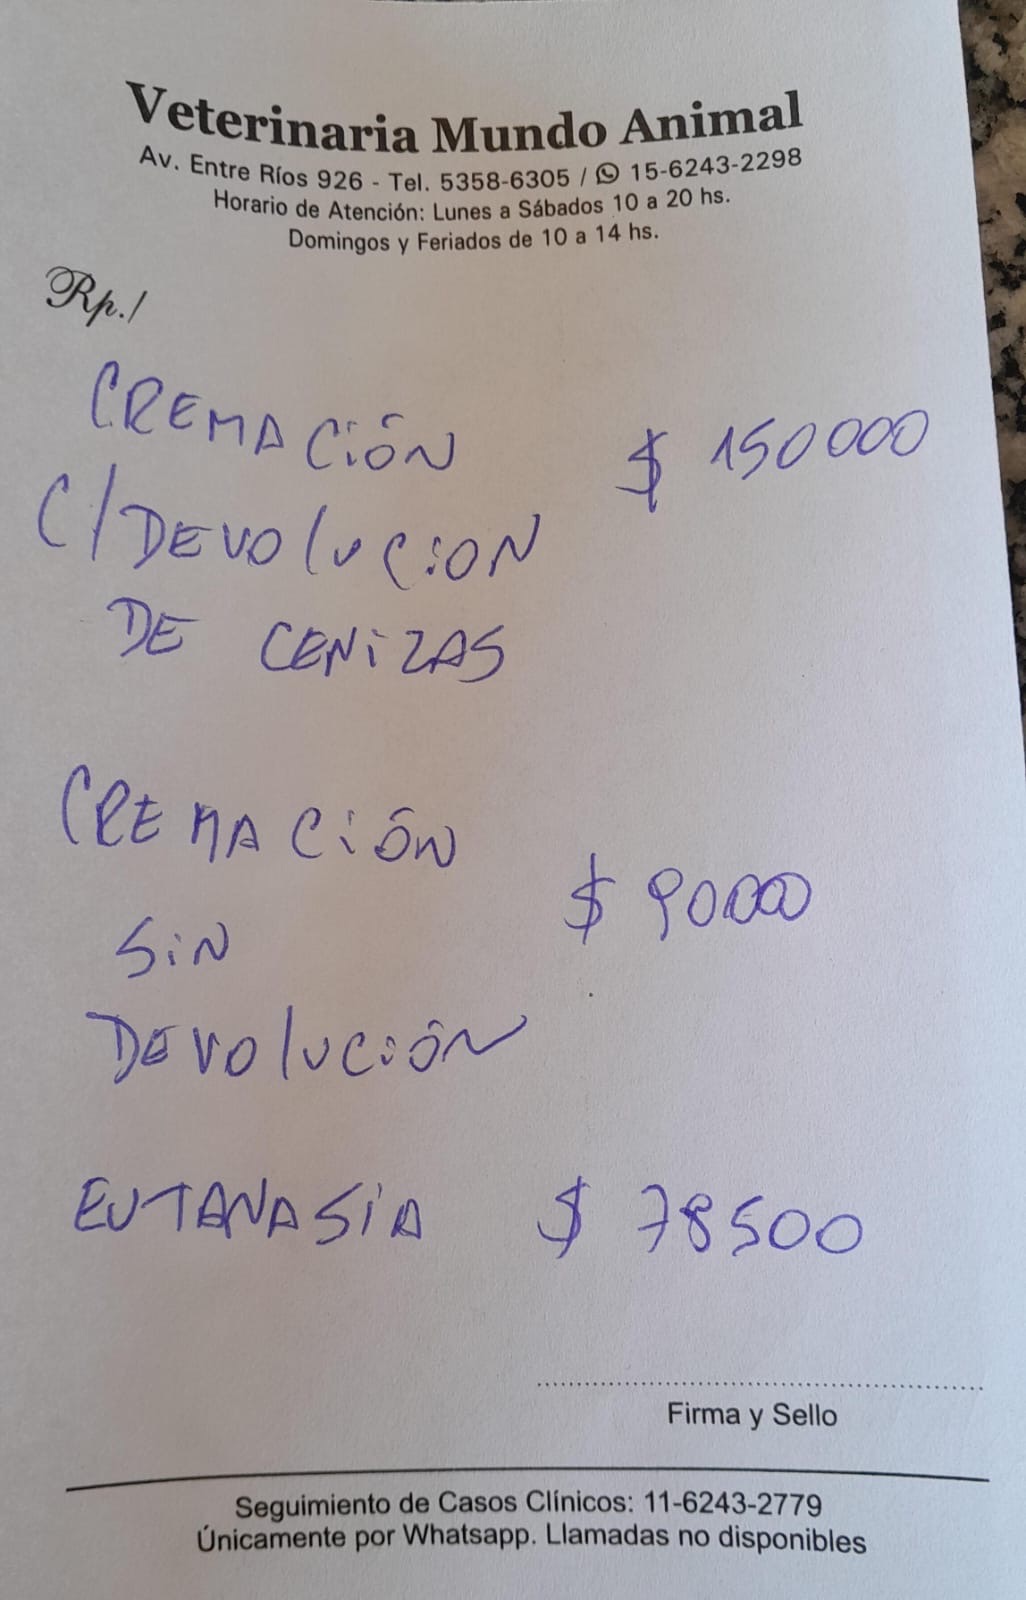 Veterinaria Mundo Animal
Av. Entre Ríos 926 - Tel. 5358-6305 / 15-6243-2298
Horario de Atención: Lunes a Sábados 10 a 20 hs.
Domingos y Feriados de 10 a 14 hs.
Rp./
CREMACIÓN $ 150000
C/DEVOLUCION
DE CENIZAS
CREMACIÓN
SIN $ 90000
DEVOLUCIÓN
EUTANASIA $ 78500
Firma y Sello
Seguimiento de Casos Clínicos: 11-6243-2779
Únicamente por Whatsapp. Llamadas no disponibles